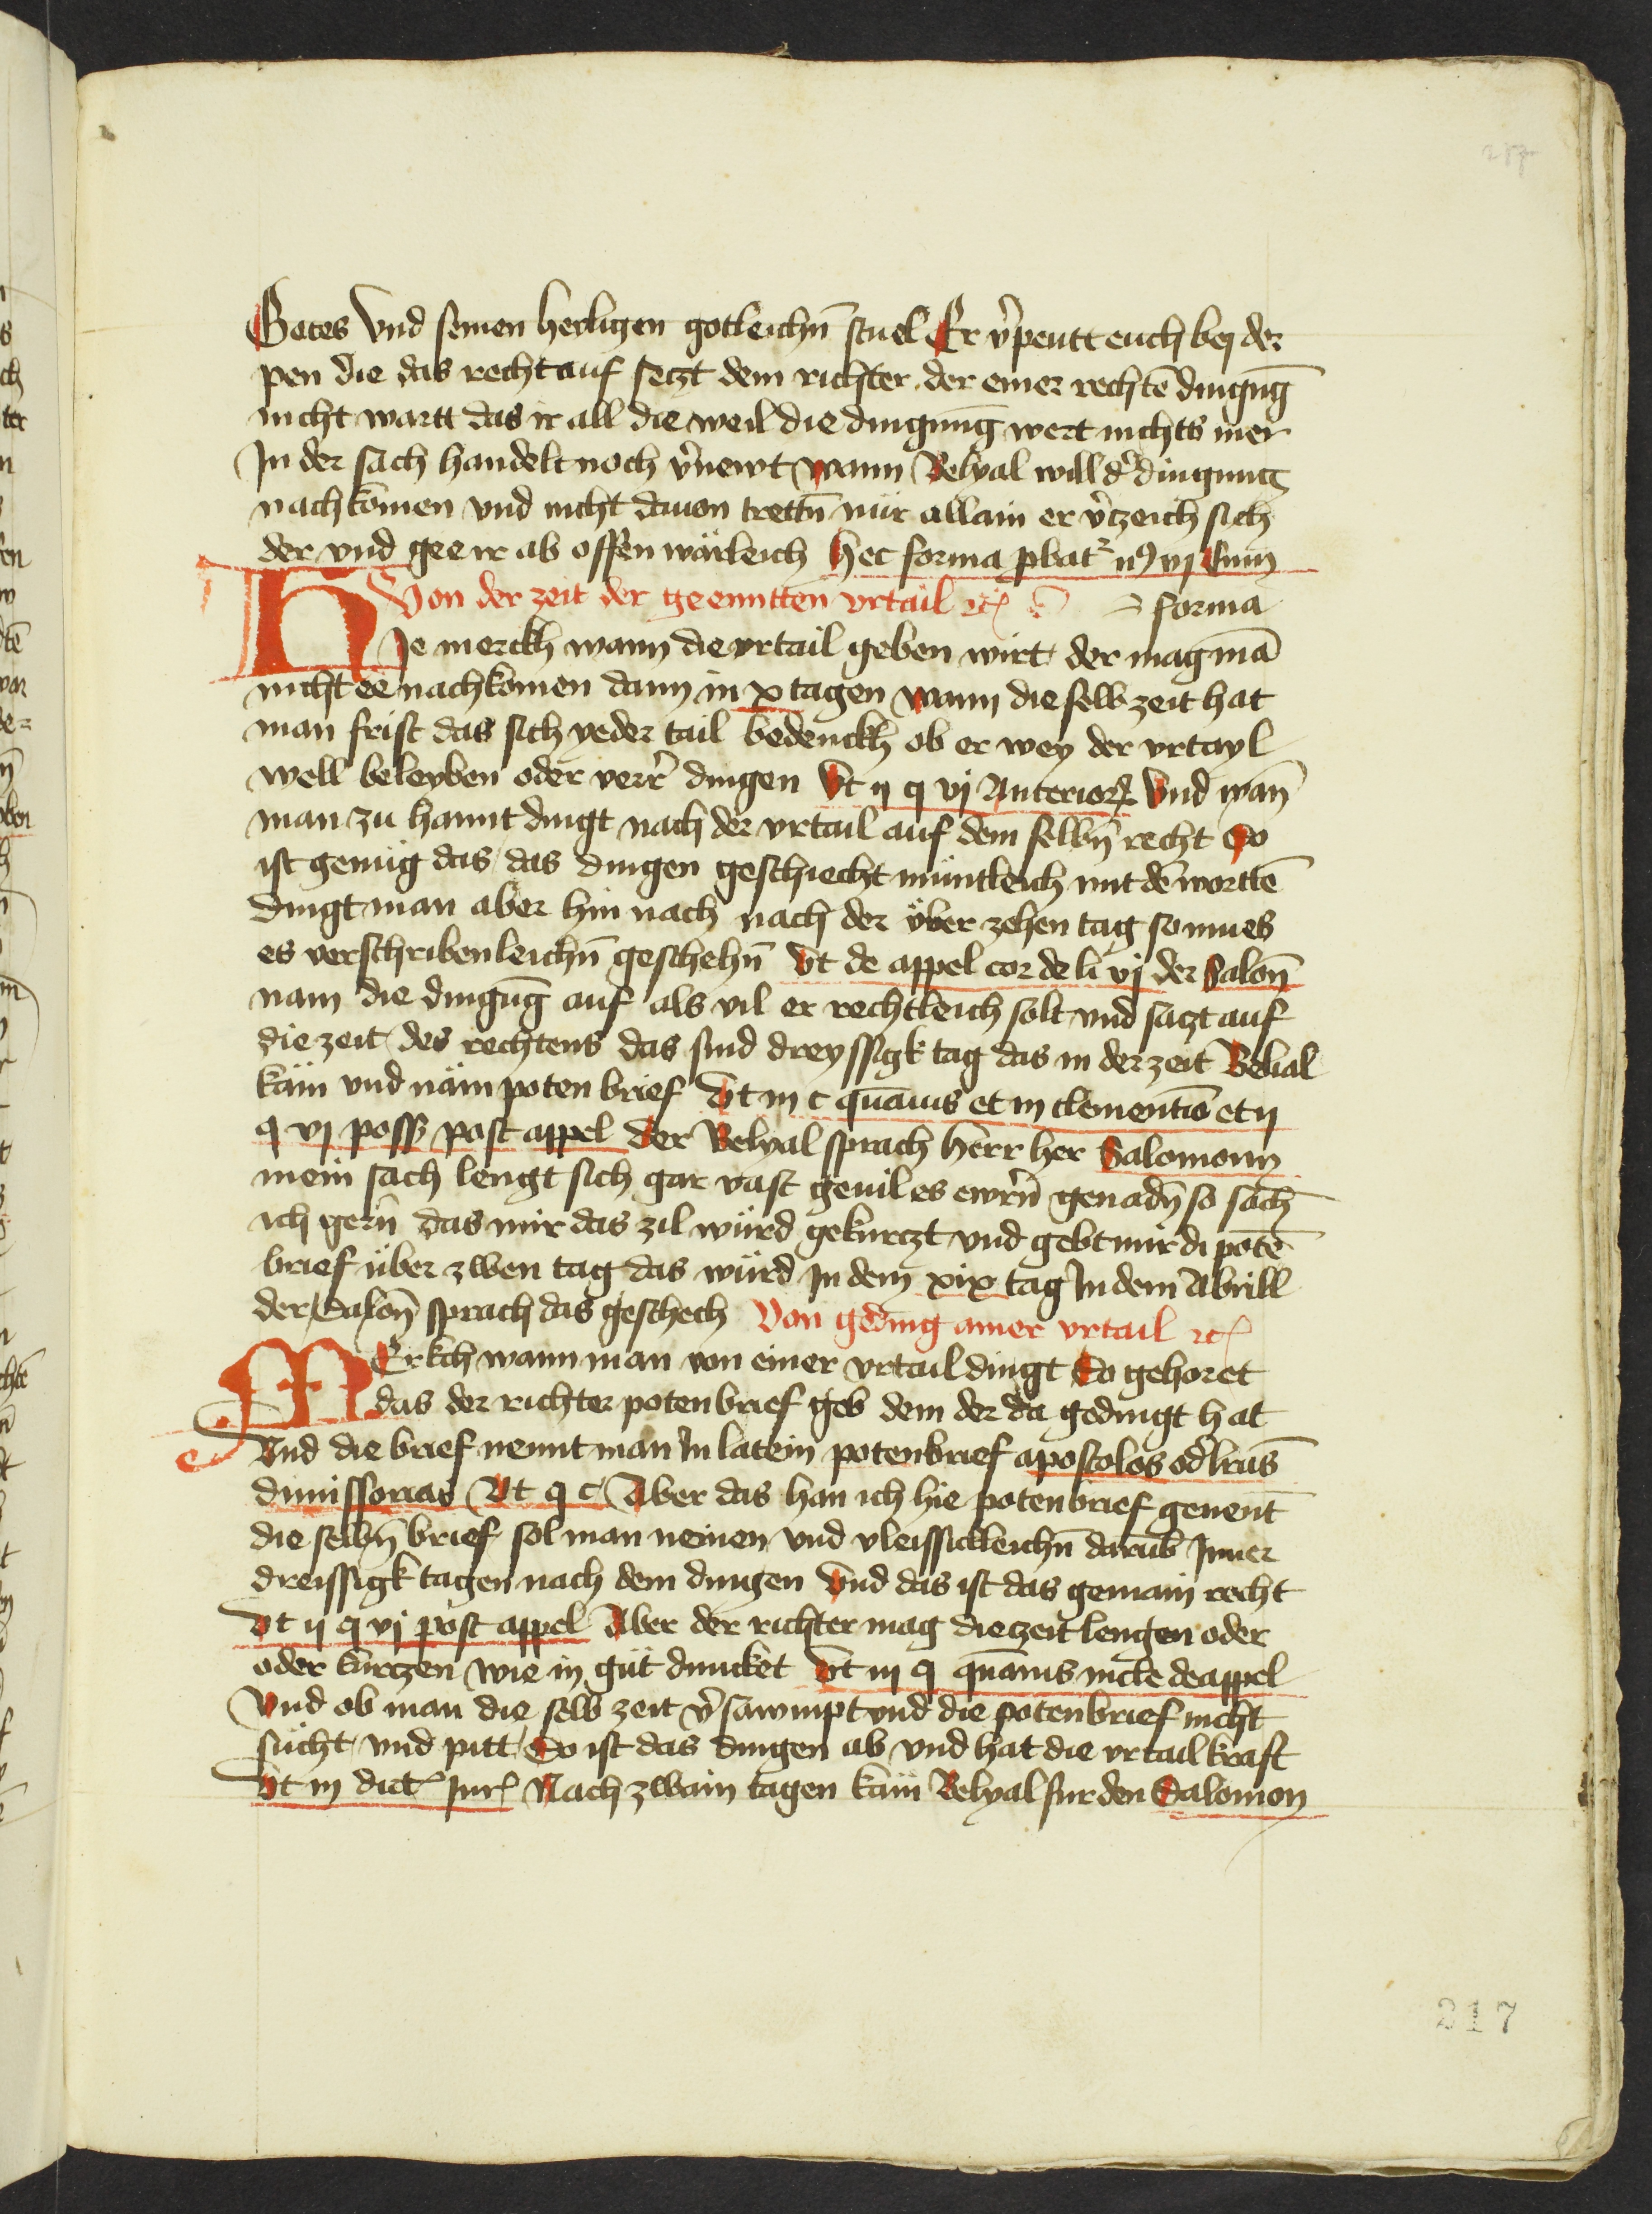 Gotes Vnd seinen heyligen gotleichñ stuel Er v̾peutt euch bey der
pen die das recht auf setzt dem richter der einer rechtē dingūg
nicht wartt das ir all die weil die dingūng wert nichts mer
In der sach handelt noch v̾newt wann Belyal will d̾ dingung
nachkomen vnd nicht dauon trettñ nür allain er v̾tzeich sich
der vnd gee ir ab offenwärleich hec forma
Von der zeit der geenntten vrtail ⁊c̃ = forma
HIe merckh wann die vrtail geben wirt der mag mā
nicht ee nachkomen dann in x tagen wann die selb zeit hat
man frist das sich yeder tail bedenckh ob er wey der vrtayl
well beleyben oder verr̾ dingen Vt ij q vj Anterior Vnd wan̄
man zu hannt dingt nach der vrtail auf dem selbñ recht So
ist genüg das das dingen geschiecht müntleich mit dē wortē
Dingt man aber hin nach nach der vber zehen tag so mues
es verschribenleichñ geschehñ Vt de appel cor de li vj der Salon̄
nam die dingūg auf als vil er rechtleich solt vnd satzt auf
die zeit des rechtens das sind dreyssigk tag das in der zeit Belial
käm vnd näm poten brief Vt in c quāuis et in clementīs et ij
q vj poss post appel Der Belyal sprach herr her Salomonn
mein sach lengt sich gar vast geuil es ewrñ genadñ so sach
ich gerñ das mir das zil würd gekurczt vnd gebt mir di potē
brief über zwen tag das würd In dem xix tag In dem Abrill
der Salon̄ sprach das geschech Von geding ainer vrtail ⁊c̃
MErkch wann man von einer vrtail dingt So gehoret
das der richter potenbrief geb dem der da gedingt hat
Vnd die brief nennt man In latein potenbrief apostolos od̾ lr̄as
dimissorias Vt q c Aber das han ich hie potenbrief genent
die selbñ brief sol man nemen vnd vleissickleichñ darūb Inner
dreissigk tagen nach dem dingen Vnd das ist das gemain recht
Vt ij q vj post appel Aber der richter mag die zeit lengen oder
oder kurczen wie in güt duncket Vt in q quāuis in cle de appel
Vnd ob man die selb zeit v̾sawmpt vnd die potenbrief nicht
sücht vnd pitt So ist das dingen ab vnd hat die vrtail kraft
Vt in dict Jur Nach zwain tagen käm Belyal fur den Salomon
217